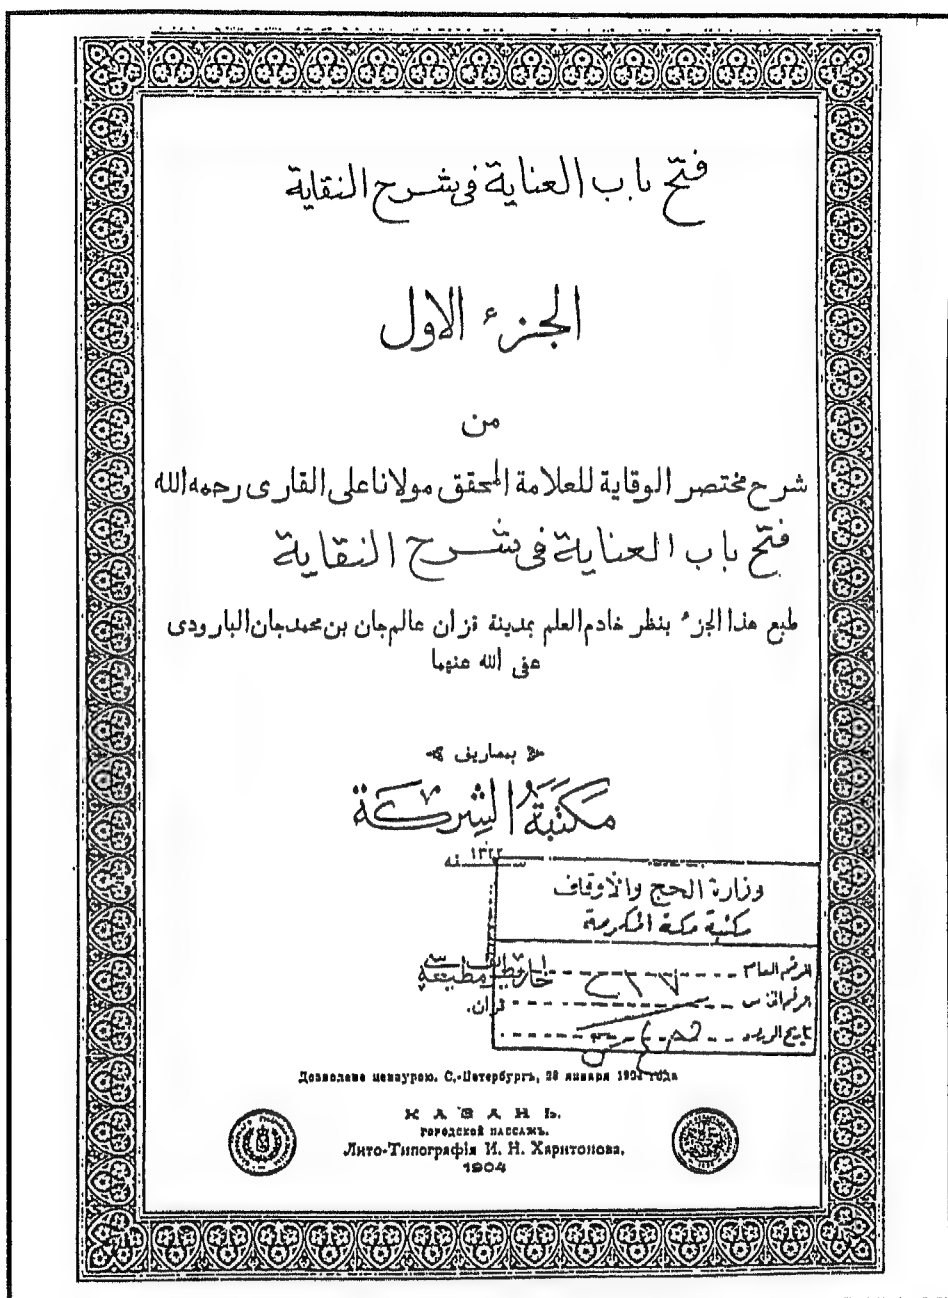 فتح باب العناية فى شرح النقاية
الجزء الاول
من
شرح مختصر الوقاية للعلامة المحقق مولانا على القارى رحمه الله
فتح باب العناية فى شرح النقاية
طبع هذا الجزء بنظر خادم العلم بمدينة قزان عالم جان بن محمد جان البارودى
عفى الله عنهما
بمصاريف
مكتبة الشركة
سنه ١٣٢٢
وزارة الحج والاوقاف
مكتبة مكة المكرمة
الرقم العام
قزان.
الرقم الخاص
تاريخ الورود
Дозволено цензурою. С.-Петербургъ, 28 января 1904 года
КАЗАНЬ.
ГОРОДСКОЙ ПАССАЖЪ.
Лито-Типографія И. Н. Харитонова.
1904